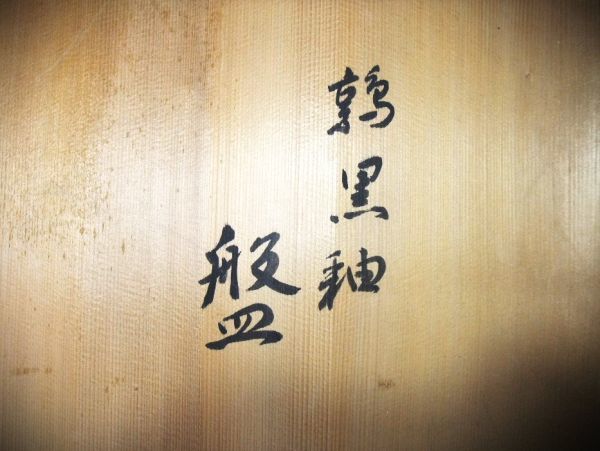 鶉黒釉
盤